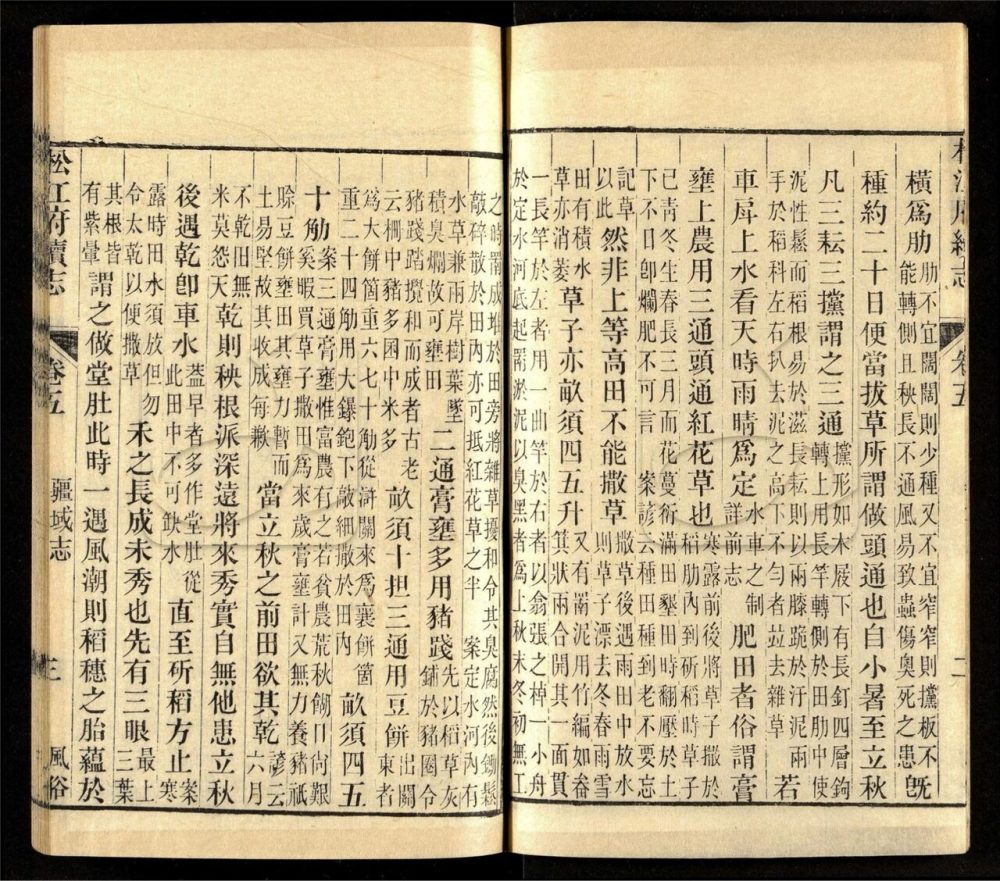 松江府續志 卷五 二
橫為肋
肋不宜闊闊則少種又不宜窄窄則攩板不
能轉側且秧長不通風易致蟲傷奧死之患
既
種約二十日便當拔草所謂做頭通也自小暑至立秋
凡三耘三攩謂之三通
攩形如木屐下有長釘四層鉤
轉上用長竿轉側於田肋中使
泥性鬆而稻根易於滋長耘則以兩膝跪於汙泥兩
手於稻科左右扒去泥之高下不勻者並去雜草
若
車戽上水看天時雨晴為定
水車之制
詳前志
肥田者俗謂膏
壅上農用三通頭通紅花草也
寒露前後將草子撒於
稻肋內到斫稻時草子
已青冬生春長三月而花蔓衍滿田墾田時翻壓於土
下不日卽爛肥不可言 案諺云種田種到老不要忘
記草
以此
然非上等高田不能撒草
撒草後遇雨田中放水
則草子漂去冬春雨雪
田有積水
草亦消萎
草子亦畝須四五升
又有罱泥用竹編如畚
箕狀兩合開其一面貫
一長竿於左者用一曲竿於右者以翕張之棹一小舟
於淀水河底起罱淤泥以臭黑者為上秋末冬初無工
之時罱成堆於田旁將雜草擾和令其臭腐然後鋤鬆
敲碎散於田內亦可抵紅花草之半 案淀水河內有
水草兼兩岸樹葉墜
積臭爛故可壅田
二通膏壅多用豬踐
先以稻草灰
鋪於豬圈令
豬踐踏攪和而成者古老
云柵中豬多囷中米多
畝須十担三通用豆餅
出關
東者
為大餅箇重六七十觔從滸關來為襄餅箇
重二十四觔用大鏍鉋下敲細撒於田內
畝須四五
十觔
案三通膏壅惟富農有之若貧農荒秋餬口尚艱
奚暇買草子撒田為來歲膏壅計又無力養豬祇
賒豆餅壅田其壅力暫而
土易堅故其收成每歉
當立秋之前田欲其乾
諺云
六月
不乾田無
米莫怨天
乾則秧根派深遠將來秀實自無他患立秋
後遇乾卽車水
蓋早者多作堂肚從
此田中不可缺水
直至斫稻方止
案
寒
露時田水須放但勿
令太乾以便撒草
禾之長成未秀也先有三眼
最上
三葉
其根皆
有紫暈
謂之做堂肚此時一遇風潮則稻穗之胎蘊於
松江府續志 卷五 疆域志 三 風俗